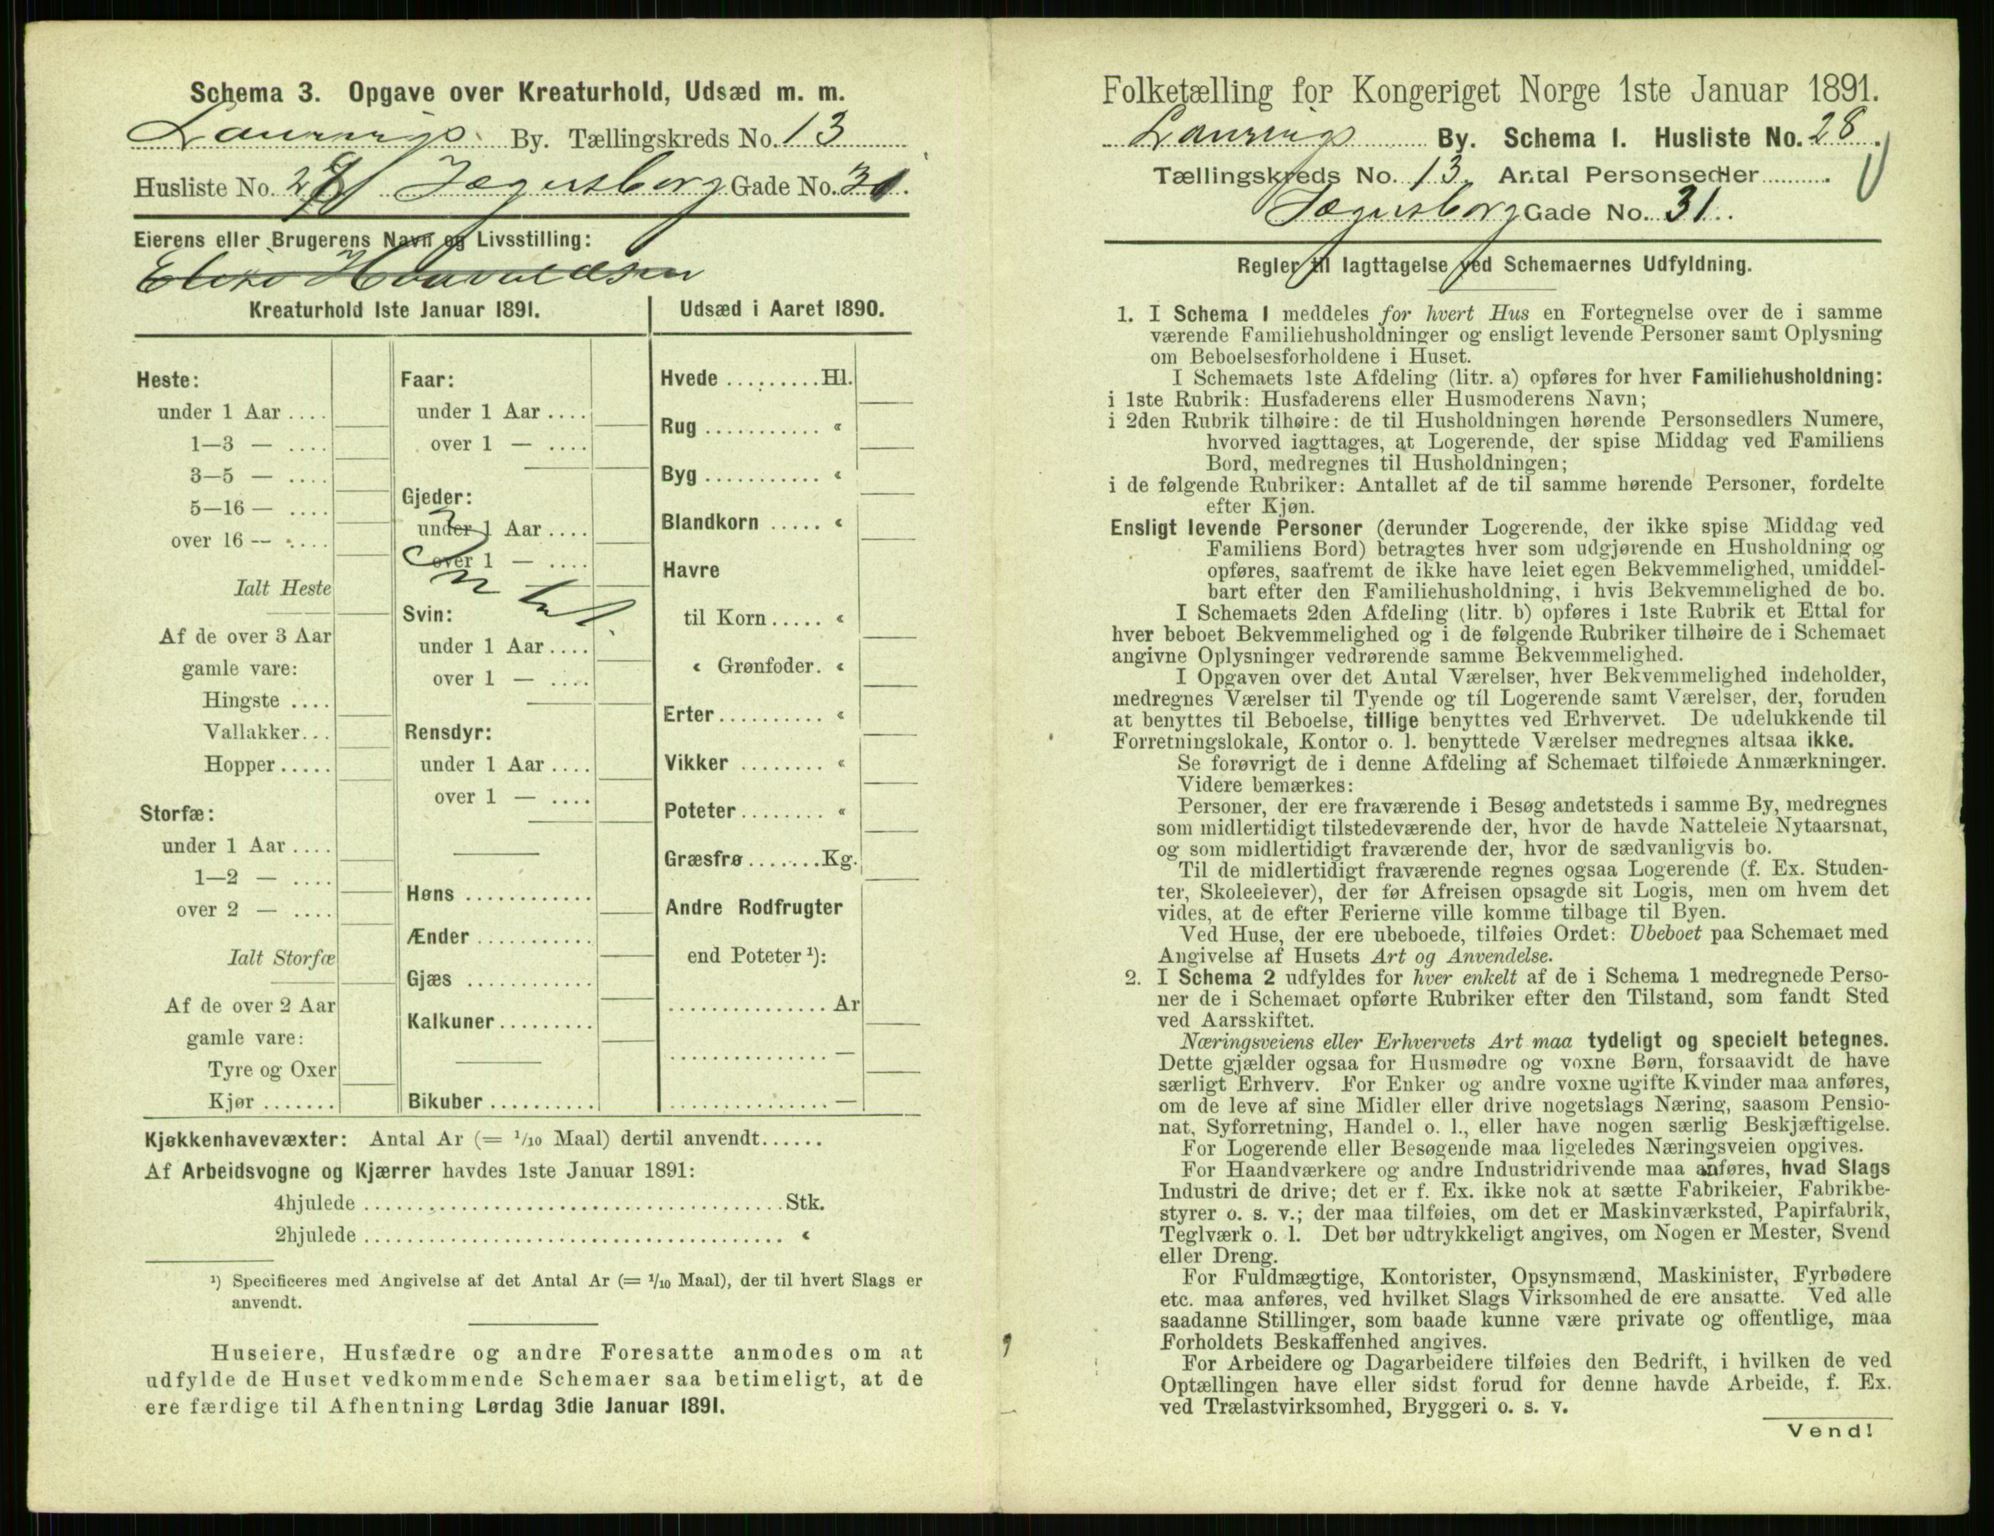 Schema 3. Opgave over Kreaturhold, Udsæd m. m.
Laurvigs By. Tællingskreds No. 13
Husliste No. 28 Jegersborg Gade No. 31.
Eierens eller Brugerens Navn og Livsstilling:
Kreaturhold 1ste Januar 1891.
Heste:
under 1 Aar ....
1—3 — ....
3—5 — ....
5—16 — ....
over 16 — ....
Ialt Heste
Af de over 3 Aar
gamle vare:
Hingste ....
Vallakker...
Hopper.....
Storfæ:
under 1 Aar ....
1—2 — ....
over 2 — ....
Ialt Storfæ
Af de over 2 Aar
gamle vare:
Tyre og Oxer
Kjør .......
Faar:
under 1 Aar ....
over 1 — ....
Gjeder:
under 1 Aar ....
over 1 — ....
Svin:
under 1 Aar ....
over 1 — ....
Rensdyr:
under 1 Aar ....
over 1 — ....
Høns ............
Ænder ...........
Gjæs ............
Kalkuner.........
Bikuber ..........
Udsæd i Aaret 1890.
Hvede .........Hl.
Rug ........... «
Byg ........... «
Blandkorn ..... «
Havre
til Korn..... «
« Grønfoder. «
Erter.......... «
Vikker ........ «
Poteter........ «
Græsfrø.......Kg.
Andre Rodfrugter
end Poteter ¹):
............... Ar
............... —
............... —
Kjøkkenhavevæxter: Antal Ar (= 1/10 Maal) dertil anvendt......
Af Arbeidsvogne og Kjærrer havdes 1ste Januar 1891:
4hjulede ........................................Stk.
2hjulede ........................................ «
¹) Specificeres med Angivelse af det Antal Ar (= 1/10 Maal), der til hvert Slags er
anvendt.
Huseiere, Husfædre og andre Foresatte anmodes om at
udfylde de Huset vedkommende Schemaer saa betimeligt, at de
ere færdige til Afhentning Lørdag 3die Januar 1891.
Folketælling for Kongeriget Norge 1ste Januar 1891.
Laurvigs By. Schema I. Husliste No. 28.
Tællingskreds No. 13. Antal Personsedler .........
Jegersborg Gade No. 31.
Regler til Iagttagelse ved Schemaernes Udfyldning.
1. I Schema 1 meddeles for hvert Hus en Fortegnelse over de i samme
værende Familiehusholdninger og ensligt levende Personer samt Oplysning
om Beboelsesforholdene i Huset.
I Schemaets 1ste Afdeling (litr. a) opføres for hver Familiehusholdning:
i 1ste Rubrik: Husfaderens eller Husmoderens Navn;
i 2den Rubrik tilhøire: de til Husholdningen hørende Personsedlers Numere,
hvorved iagttages, at Logerende, der spise Middag ved Familiens
Bord, medregnes til Husholdningen;
i de følgende Rubriker: Antallet af de til samme hørende Personer, fordelte
efter Kjøn.
Ensligt levende Personer (derunder Logerende, der ikke spise Middag ved
Familiens Bord) betragtes hver som udgjørende en Husholdning og
opføres, saafremt de ikke have leiet egen Bekvemmelighed, umiddel-
bart efter den Familiehusholdning, i hvis Bekvemmelighed de bo.
I Schemaets 2den Afdeling (litr. b) opføres i 1ste Rubrik et Ettal for
hver beboet Bekvemmelighed og i de følgende Rubriker tilhøire de i Schemaet
angivne Oplysninger vedrørende samme Bekvemmelighed.
I Opgaven over det Antal Værelser, hver Bekvemmelighed indeholder,
medregnes Værelser til Tyende og til Logerende samt Værelser, der, foruden
at benyttes til Beboelse, tillige benyttes ved Erhvervet. De udelukkende til
Forretningslokale, Kontor o. l. benyttede Værelser medregnes altsaa ikke.
Se forøvrigt de i denne Afdeling af Schemaet tilføiede Anmærkninger.
Videre bemærkes:
Personer, der ere fraværende i Besøg andetsteds i samme By, medregnes
som midlertidigt tilstedeværende der, hvor de havde Natteleie Nytaarsnat,
og som midlertidigt fraværende der, hvor de sædvanligvis bo.
Til de midlertidigt fraværende regnes ogsaa Logerende (f. Ex. Studen-
ter, Skoleelever), der før Afreisen opsagde sit Logis, men om hvem det
vides, at de efter Ferierne ville komme tilbage til Byen.
Ved Huse, der ere ubeboede, tilføies Ordet: Ubeboet paa Schemaet med
Angivelse af Husets Art og Anvendelse.
2. I Schema 2 udfyldes for hver enkelt af de i Schema 1 medregnede Perso-
ner de i Schemaet opførte Rubriker efter den Tilstand, som fandt Sted
ved Aarsskiftet.
Næringsveiens eller Erhvervets Art maa tydeligt og specielt betegnes.
Dette gjælder ogsaa for Husmødre og voxne Børn, forsaavidt de have
særligt Erhverv. For Enker og andre voxne ugifte Kvinder maa anføres,
om de leve af sine Midler eller drive nogetslags Næring, saasom Pensio-
nat, Syforretning, Handel o. l., eller have nogen særlig Beskjæftigelse.
For Logerende eller Besøgende maa ligeledes Næringsveien opgives.
For Haandværkere og andre Industridrivende maa anføres, hvad Slags
Industri de drive; det er f. Ex. ikke nok at sætte Fabrikeier, Fabrikbe-
styrer o. s. v.; der maa tilføies, om det er Maskinværksted, Papirfabrik,
Teglværk o. l. Det bør udtrykkeligt angives, om Nogen er Mester, Svend
eller Dreng.
For Fuldmægtige, Kontorister, Opsynsmænd, Maskinister, Fyrbødere
etc. maa anføres, ved hvilket Slags Virksomhed de ere ansatte. Ved alle
saadanne Stillinger, som baade kunne være private og offentlige, maa
Forholdets Beskaffenhed angives.
For Arbeidere og Dagarbeidere tilføies den Bedrift, i hvilken de ved
Optællingen have eller sidst forud for denne havde Arbeide, f. Ex.
ved Trælastvirksomhed, Bryggeri o. s. v.
Vend!